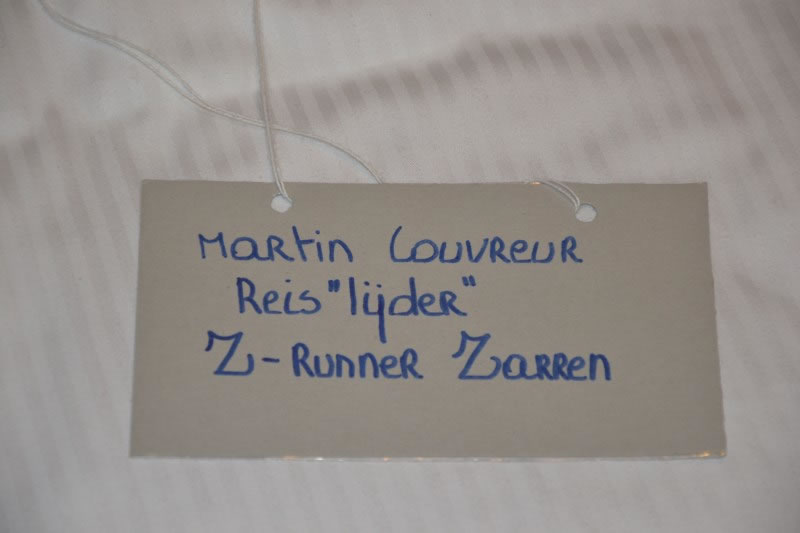 Martin Louvreur
Reis "lijder"
Z-Runner Zarren